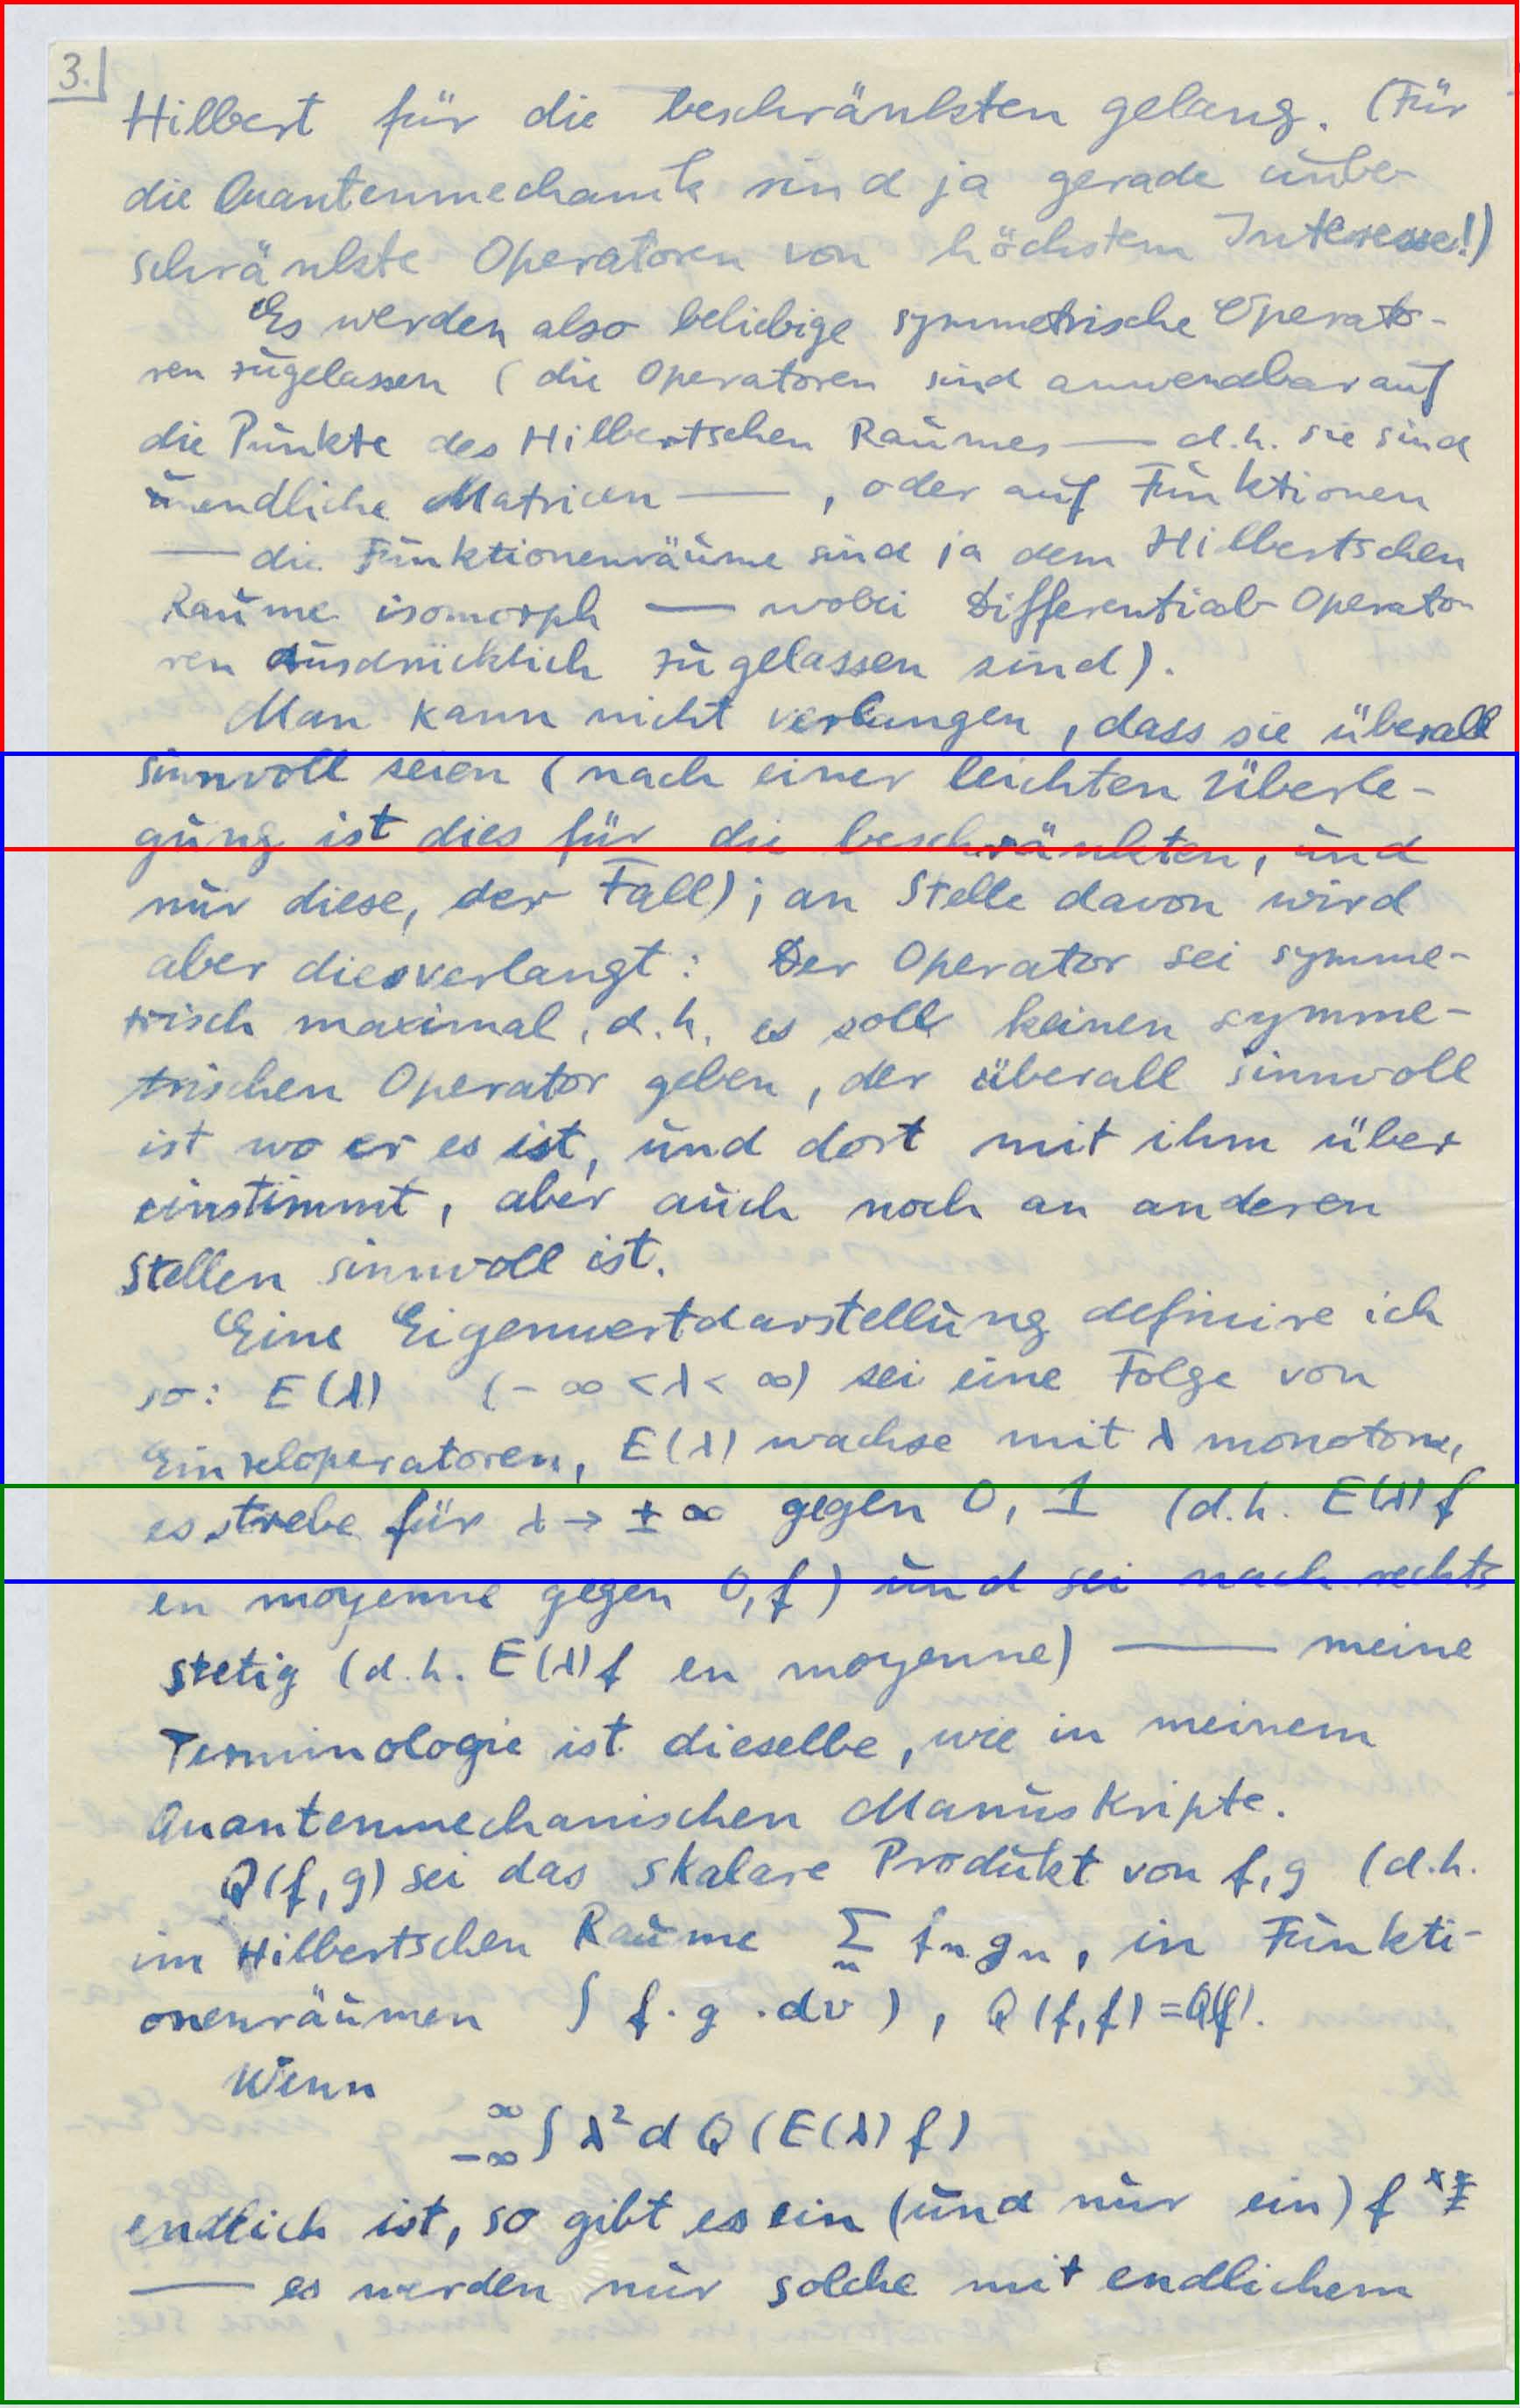 3.
Hilbert für die beschränkten gelang. (Für
die Quantenmechanik sind ja gerade unbe-
schränkte Operatoren von höchstem Interesse!)
Es werden also beliebige symmetrische Operato-
ren zugelassen (die Operatoren sind anwendbar auf
die Punkte des Hilbertschen Raumes — d.h. sie sind
unendliche Matricen — , oder auf Funktionen
— die Funktionenräume sind ja dem Hilbertschen
Raume isomorph — wobei Differential-Operato-
ren ausdrücklich zugelassen sind).
Man kann nicht verlangen, dass sie überall
sinnvoll seien (nach einer leichten Überle-
gung ist dies für die beschränkten, und
nur diese, der Fall); an Stelle davon wird
aber dies verlangt: Der Operator sei symme-
trisch maximal, d.h. es soll keinen symme-
trischen Operator geben, der überall sinnvoll
ist wo er es ist, und dort mit ihm über
einstimmt, aber auch noch an anderen
Stellen sinnvoll ist.
Eine Eigenwertdarstellung definire ich
so: E(λ) (-∞<λ<∞) sei eine Folge von
Einzeloperatoren, E(λ) wachse mit λ monoton,
es strebe für λ→±∞ gegen 0, 1 (d.h. E(λ)f
en moyenne gegen 0, f) und sei nach rechts
stetig (d.h. E(λ)f en moyenne) — meine
Terminologie ist dieselbe, wie in meinem
Quantenmechanischen Manuskripte.
Q(f,g) sei das skalare Produkt von f,g (d.h.
im Hilbertschen Raume ∑ₙ fₙgₙ, in Funkti-
onenräumen ∫ f·g·dv), Q(f,f)=Q(f).
Wenn
∞
-∞ ∫ λ² d Q(E(λ)f)
endlich ist, so gibt es ein (und nur ein) f
— es werden nur solche mit endlichem